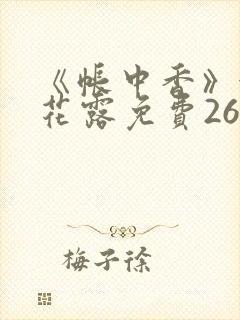 《帳中香》
花露免費26
梅子徐